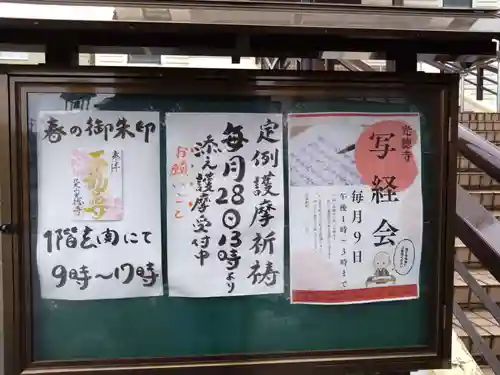 春の御朱印
奉拝
1階玄関にて
9時〜17時
定例護摩祈祷
毎月28日13時より
添え護摩受付中
お願いごと
光徳寺
写経会
毎月9日
午後1時〜3時まで